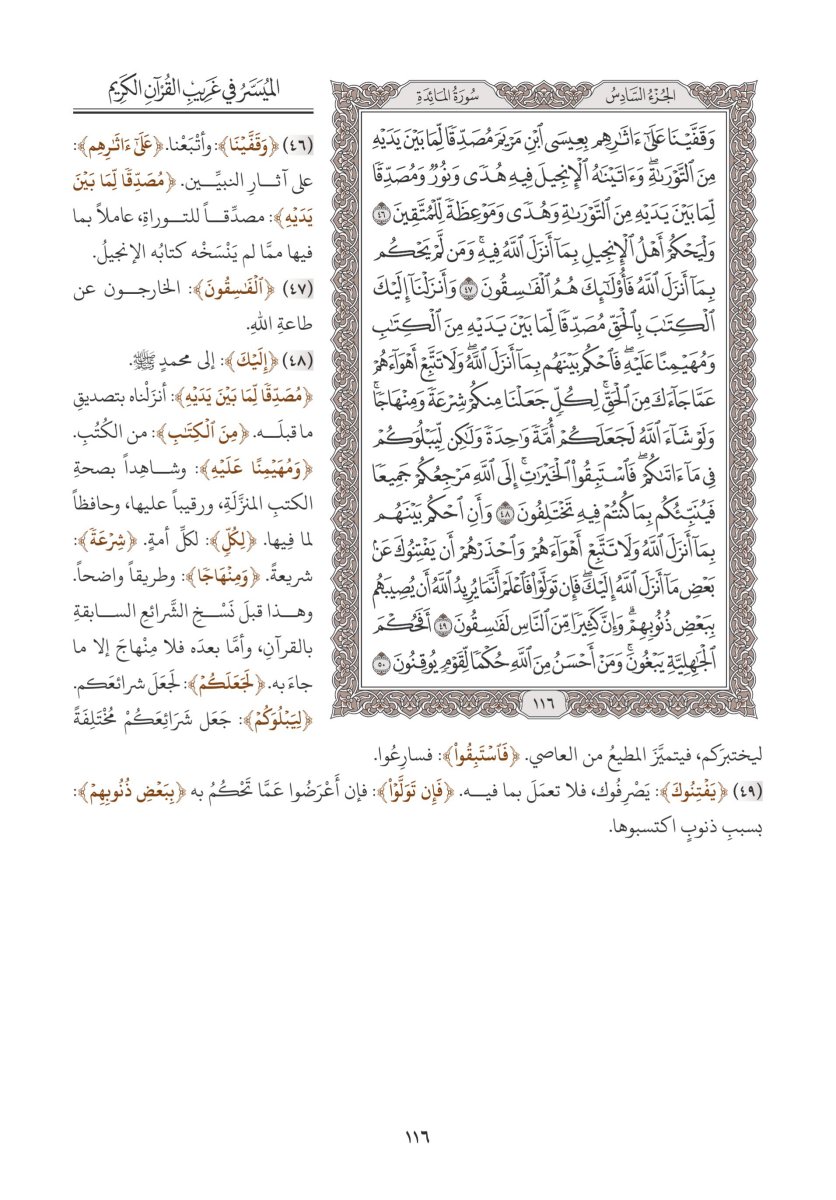 الميُسَّرُ في غَرِيبِ القُرْآنِ الكَرِيم
الجُزْءُ السَّادِسُ
سُورَةُ المَائِدَةِ
وَقَفَّيْنَا عَلَىٰٓ ءَاثَٰرِهِم بِعِيسَى ٱبْنِ مَرْيَمَ مُصَدِّقًا لِّمَا بَيْنَ يَدَيْهِ
مِنَ ٱلتَّوْرَىٰةِۖ وَءَاتَيْنَٰهُ ٱلْإِنجِيلَ فِيهِ هُدًى وَنُورٌ وَمُصَدِّقًا
لِّمَا بَيْنَ يَدَيْهِ مِنَ ٱلتَّوْرَىٰةِ وَهُدًى وَمَوْعِظَةً لِّلْمُتَّقِينَ ٤٦
وَلْيَحْكُمْ أَهْلُ ٱلْإِنجِيلِ بِمَآ أَنزَلَ ٱللَّهُ فِيهِۚ وَمَن لَّمْ يَحْكُم
بِمَآ أَنزَلَ ٱللَّهُ فَأُو۟لَٰٓئِكَ هُمُ ٱلْفَٰسِقُونَ ٤٧ وَأَنزَلْنَآ إِلَيْكَ
ٱلْكِتَٰبَ بِٱلْحَقِّ مُصَدِّقًا لِّمَا بَيْنَ يَدَيْهِ مِنَ ٱلْكِتَٰبِ
وَمُهَيْمِنًا عَلَيْهِۖ فَٱحْكُم بَيْنَهُم بِمَآ أَنزَلَ ٱللَّهُۖ وَلَا تَتَّبِعْ أَهْوَآءَهُمْ
عَمَّا جَآءَكَ مِنَ ٱلْحَقِّۚ لِكُلٍّ جَعَلْنَا مِنكُمْ شِرْعَةً وَمِنْهَاجًاۚ
وَلَوْ شَآءَ ٱللَّهُ لَجَعَلَكُمْ أُمَّةً وَٰحِدَةً وَلَٰكِن لِّيَبْلُوَكُمْ
فِي مَآ ءَاتَىٰكُمْۖ فَٱسْتَبِقُوا۟ ٱلْخَيْرَٰتِۚ إِلَى ٱللَّهِ مَرْجِعُكُمْ جَمِيعًا
فَيُنَبِّئُكُم بِمَا كُنتُمْ فِيهِ تَخْتَلِفُونَ ٤٨ وَأَنِ ٱحْكُم بَيْنَهُم
بِمَآ أَنزَلَ ٱللَّهُ وَلَا تَتَّبِعْ أَهْوَآءَهُمْ وَٱحْذَرْهُمْ أَن يَفْتِنُوكَ عَنۢ
بَعْضِ مَآ أَنزَلَ ٱللَّهُ إِلَيْكَۖ فَإِن تَوَلَّوْا۟ فَٱعْلَمْ أَنَّمَا يُرِيدُ ٱللَّهُ أَن يُصِيبَهُم
بِبَعْضِ ذُنُوبِهِمْۗ وَإِنَّ كَثِيرًا مِّنَ ٱلنَّاسِ لَفَٰسِقُونَ ٤٩ أَفَحُكْمَ
ٱلْجَٰهِلِيَّةِ يَبْغُونَۚ وَمَنْ أَحْسَنُ مِنَ ٱللَّهِ حُكْمًا لِّقَوْمٍ يُوقِنُونَ ٥٠
١١٦
(٤٦) ﴿وَقَفَّيْنَا﴾: وأتْبَعْنا. ﴿عَلَىٰٓ ءَاثَٰرِهِم﴾:
على آثـار النبيِّـين. ﴿مُصَدِّقًا لِّمَا بَيْنَ
يَدَيْهِ﴾: مصدِّقـاً للتـوراةِ، عاملاً بما
فيها ممَّا لم يَنْسَخْه كتابُه الإنجيلُ.
(٤٧) ﴿ٱلْفَٰسِقُونَ﴾: الخارجـون عن
طاعةِ اللهِ.
(٤٨) ﴿إِلَيْكَ﴾: إلى محمدٍ ﷺ.
﴿مُصَدِّقًا لِّمَا بَيْنَ يَدَيْهِ﴾: أنزَلْناه بتصديقِ
ما قبلَـه. ﴿مِنَ ٱلْكِتَٰبِ﴾: من الكُتُبِ.
﴿وَمُهَيْمِنًا عَلَيْهِ﴾: وشـاهِداً بصحةِ
الكتبِ المنزَّلَةِ، ورقيباً عليها، وحافظاً
لما فِيها. ﴿لِكُلٍّ﴾: لكلِّ أمةٍ. ﴿شِرْعَةً﴾:
شريعةً. ﴿وَمِنْهَاجًا﴾: وطريقاً واضحاً.
وهـذا قبلَ نَسْـخِ الشَّرائعِ السـابقةِ
بالقرآنِ، وأمَّا بعدَه فلا مِنْهاجَ إلا ما
جاءَ به. ﴿لَجَعَلَكُمْ﴾: لَجَعَلَ شرائعَكم.
﴿لِّيَبْلُوَكُمْ﴾: جَعَل شَرَائِعَكُمْ مُخْتَلِفَةً
ليختبرَكم، فيتميَّزَ المطيعُ من العاصي. ﴿فَٱسْتَبِقُوا۟﴾: فسارِعُوا.
(٤٩) ﴿يَفْتِنُوكَ﴾: يَصْرِفُوك، فلا تعمَلَ بما فيـه. ﴿فَإِن تَوَلَّوْا۟﴾: فإن أَعْرَضُوا عَمَّا تَحْكُمُ به ﴿بِبَعْضِ ذُنُوبِهِمْ﴾:
بسببِ ذنوبٍ اكتسبوها.
١١٦